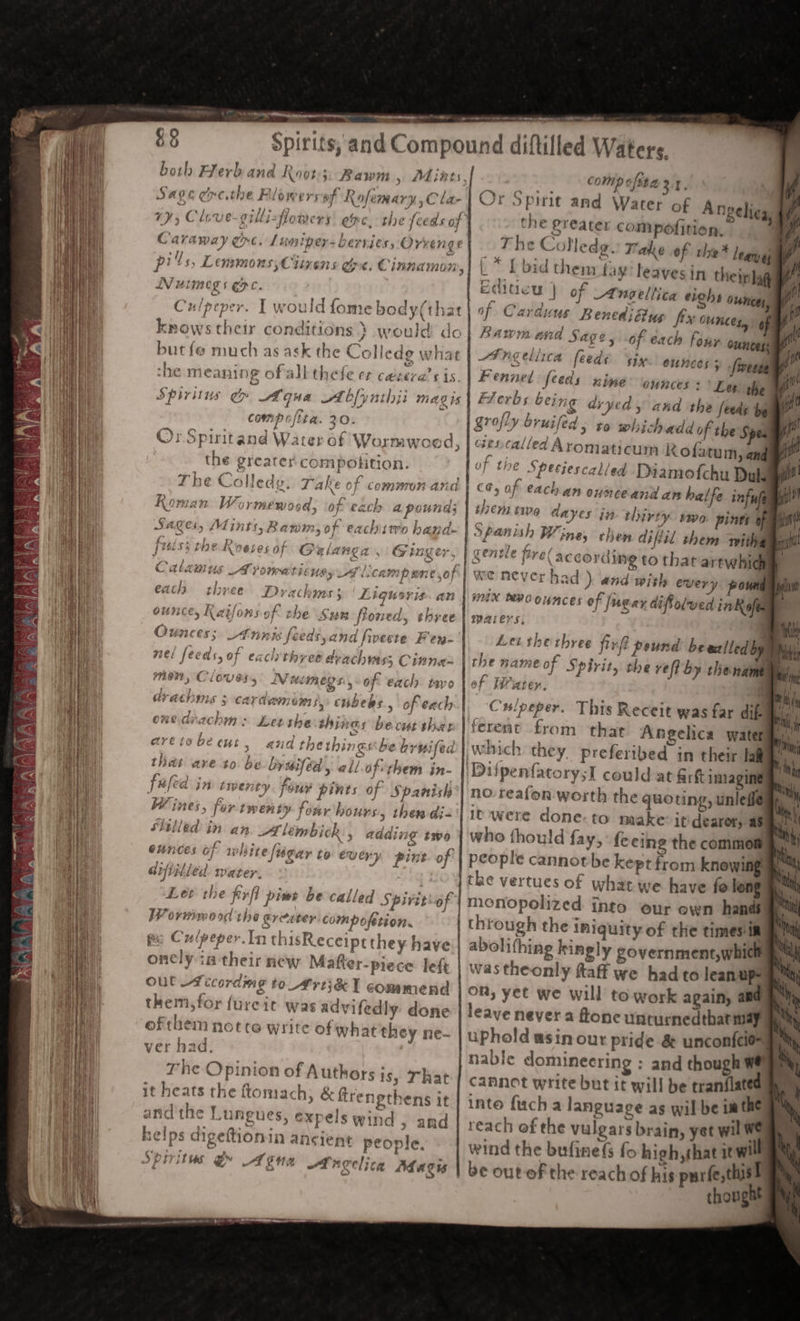 88 Spirits, and Compound diſtilled Waters.
both Herb and Roots; Bawm, Mints,
Sage &c. the Flowers of Roſemary, Cla-
ry, Clove-gilli-flowers &c, the ſeeds of
Caraway &c. Iuniper-berries, Orrenge
pills, Lemmons, Citrens &c. Cinnamon,
Nutmegs &c.
Culpeper. I would ſome body (that
knows their conditions) would do
but ſo much as ask the Colledg what
the meaning of all theſe et cætera's is.
Spiritus & Aqua Abſynthii magis
compoſita. 30.
Or Spirit and Water of Wormwood,
the greater compoſition.
The Colledg. Take of common and
Roman Wormewood, of each a pound;
Sages, Mints, Bawm, of each two hand-
fuls; the Rootes of Galanga, Ginger,
Calamus Aromaticus, Alicampane, of
each three Drachms; Liquoris an
ounce, Raiſons of the Sun ſtoned, three
Ounces; Annis ſeeds, and ſweete Fen-
nel ſeeds, of each three drachms; Cinna-
mon, Cloves, Nutmegs, of each two
drachms; cardamoms, cubebs, of each
one drachm: Let the things be cut that
are to be cut, and the things be bruiſed
that are to be bruiſed, all of them in-
fuſed in twenty four pints of Spanish
Wines, for twenty four hours, then di-
ſtilled in an Alembick, adding two
ounces of white ſugar to every pint of
diſtilled water.
Let the firſt pint be called Spirit of
Wormwood the greater compoſition.
Culpeper. In this Receipt they have
onely in their new Maſter-piece left
out According to Art; & I commend
them, for ſure it was adviſedly done
of them not to write of what they ne-
ver had.
The Opinion of Authors is, That
it heats the ſtomach, & ſtrengthens it
and the Lungues, expels wind, and
helps digeſtion in ancient people.
Spiritus & Aqua Angelica Magis
compoſita 31.
Or Spirit and Water of Angelica,
the greater compoſition.
The Colledg. Take of the* leaves
[* I bid them ſay leaves in their laſt
Editicu] of Angellica eight ounces,
of Carduus Benedictus ſix ounces, of
Bawm and Sage, of each four ounces;
Angellica ſeeds six ounces; ſweete
Fennel ſeeds nine ounces: Let the
Herbs being dryed, and the ſeeds be
groſly bruiſed, to which add of the Spe-
cies called Aromaticum Roſatum, and
of the Species called Diamoſchu Dul-
ce, of each an ounce and an halfe infuſe
them two dayes in thirty two pints of
Spanish Wine, then diſtil them with a
gentle fire (according to that art which
we never had) and with every pound
mix two ounces of ſugar diſſolved in Roſe-
waters.
Let the three firſt pound be called by
the name of Spirit, the reſt by the name
of Water.
Culpeper. This Receit was far dif-
ferent from that Angelica water
which they preſcribed in their laſt
Diſpenſatory; I could at firſt imagine
no reaſon worth the quoting, unleſſe
it were done to make it dearer, as
who ſhould ſay, ſeeing the common
people cannot be kept from knowing
the vertues of what we have ſo long
monopolized into our own hands
through the iniquity of the times in
aboliſhing kingly government, which
was the only ſtaff we had to lean up-
on, yet we will to work again, and
leave never a ſtone unturned that may
uphold us in our pride & unconſcio-
nable domineering: and though we
cannot write but it will be tranſlated
into ſuch a language as wil be in the
reach of the vulgars brain, yet wil we
wind the buſineſs ſo high, that it will
be out of the reach of his purſe, this I
thought